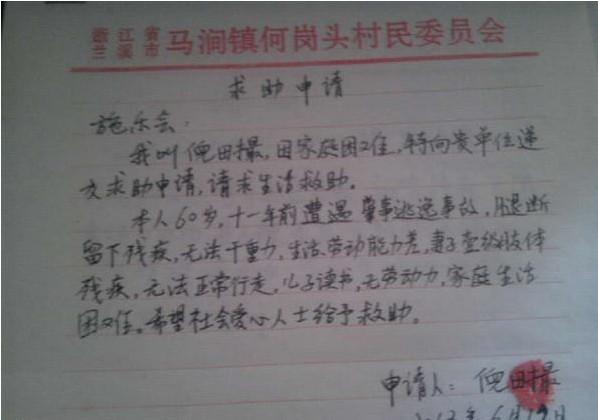 浙江省
兰溪市
马涧镇何岗头村民委员会
求助申请
施乐会:
我叫倪田撮,因家庭困难,特向贵单位递
交求助申请,请求生活救助。
本人60岁,十一年前遭遇肇事逃逸事故,腿断
留下残疾,无法干重力,生活劳动能力差,妻子壹级肢体
残疾,无法正常行走,儿子读书,无劳动力,家庭生活
困难。希望社会爱心人士给予救助。
申请人:倪田撮
年6月19日